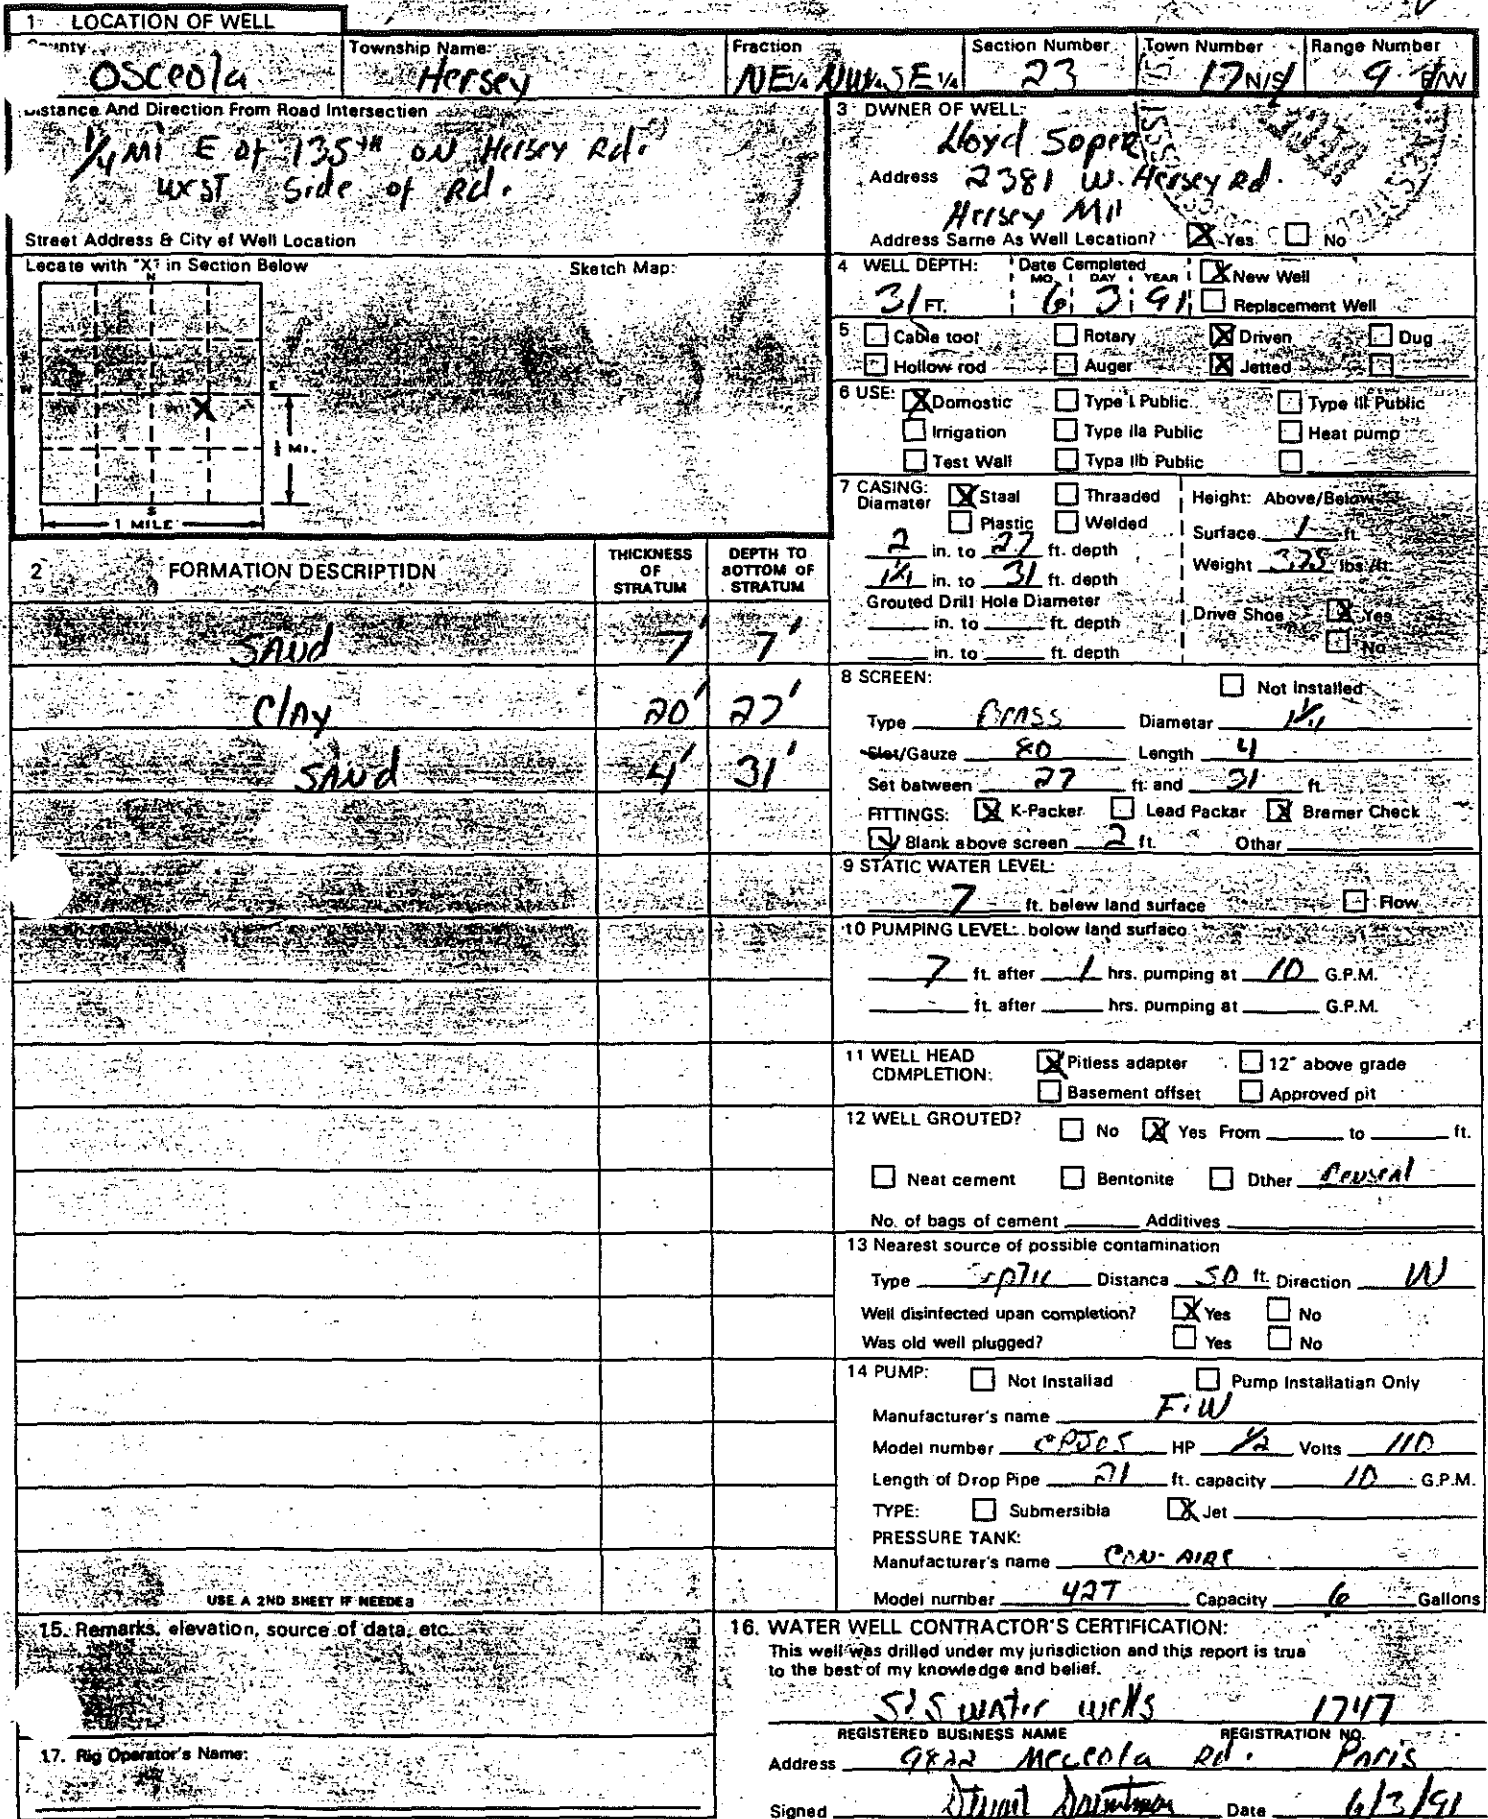 1 LOCATION OF WELL
County Township Name: Fraction Section Number Town Number Range Number
Osceola Hersey NE¼ NW¼ SE¼ 23 17 N/S 9 E/W
Distance And Direction From Road Intersection
¼ Mi E of 135th ON Hersey Rd.
West Side of Rd.
Street Address & City of Well Location
Locate with "X" in Section Below Sketch Map:
N
W
E
½ MI.
S
1 MILE
3 OWNER OF WELL:
Lloyd Soper
Address 2381 W. Hersey Rd.
Hersey MI
Address Same As Well Location? X Yes No
4 WELL DEPTH: Date Completed X New Well
MO. DAY YEAR
31 FT. 6 3 91 Replacement Well
5 Cable tool Rotary X Driven Dug
Hollow rod Auger X Jetted
6 USE: X Domestic Type I Public Type III Public
Irrigation Type IIa Public Heat pump
Test Well Type IIb Public
7 CASING: X Steel Threaded Height: Above/Below
Diameter Plastic Welded Surface 1 ft.
2 in. to 27 ft. depth Weight 3.75 lbs./ft.
1¼ in. to 31 ft. depth
Grouted Drill Hole Diameter Drive Shoe X Yes
in. to ft. depth No
in. to ft. depth
2 FORMATION DESCRIPTION THICKNESS OF STRATUM DEPTH TO BOTTOM OF STRATUM
SAND 7' 7'
Clay 20' 27'
SAND 4' 31'
USE A 2ND SHEET IF NEEDED
8 SCREEN: Not Installed
Type Brass Diameter 1¼
Slot/Gauze 80 Length 4
Set between 27 ft. and 31 ft.
FITTINGS: X K-Packer Lead Packer X Bremer Check
Blank above screen 2 ft. Other
9 STATIC WATER LEVEL:
7 ft. below land surface Flow
10 PUMPING LEVEL: below land surface
7 ft. after 1 hrs. pumping at 10 G.P.M.
ft. after hrs. pumping at G.P.M.
11 WELL HEAD COMPLETION: X Pitless adapter 12" above grade
Basement offset Approved pit
12 WELL GROUTED? No X Yes From to ft.
Neat cement Bentonite Other
No. of bags of cement Additives
13 Nearest source of possible contamination
Type Septic Distance 50 ft. Direction W
Well disinfected upon completion? X Yes No
Was old well plugged? Yes No
14 PUMP: Not Installed Pump Installation Only
Manufacturer's name F&W
Model number CPJ05 HP ½ Volts 110
Length of Drop Pipe 21 ft. capacity 10 G.P.M.
TYPE: Submersible X Jet
PRESSURE TANK:
Manufacturer's name CON-AIRE
Model number 42T Capacity 6 Gallons
15. Remarks, elevation, source of data, etc.
16. WATER WELL CONTRACTOR'S CERTIFICATION:
This well was drilled under my jurisdiction and this report is true
to the best of my knowledge and belief.
S&S Water Wells 1747
REGISTERED BUSINESS NAME REGISTRATION NO.
Address 9822 Meceola Rd. Paris
Signed Date 6/3/91
17. Rig Operator's Name: